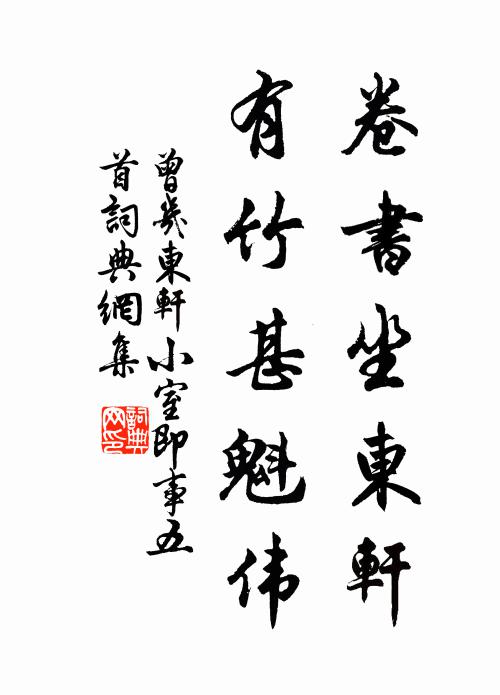 卷書坐東軒
有竹甚魁伟
曾幾東軒小室即事五
首詞典網集
詞典网印